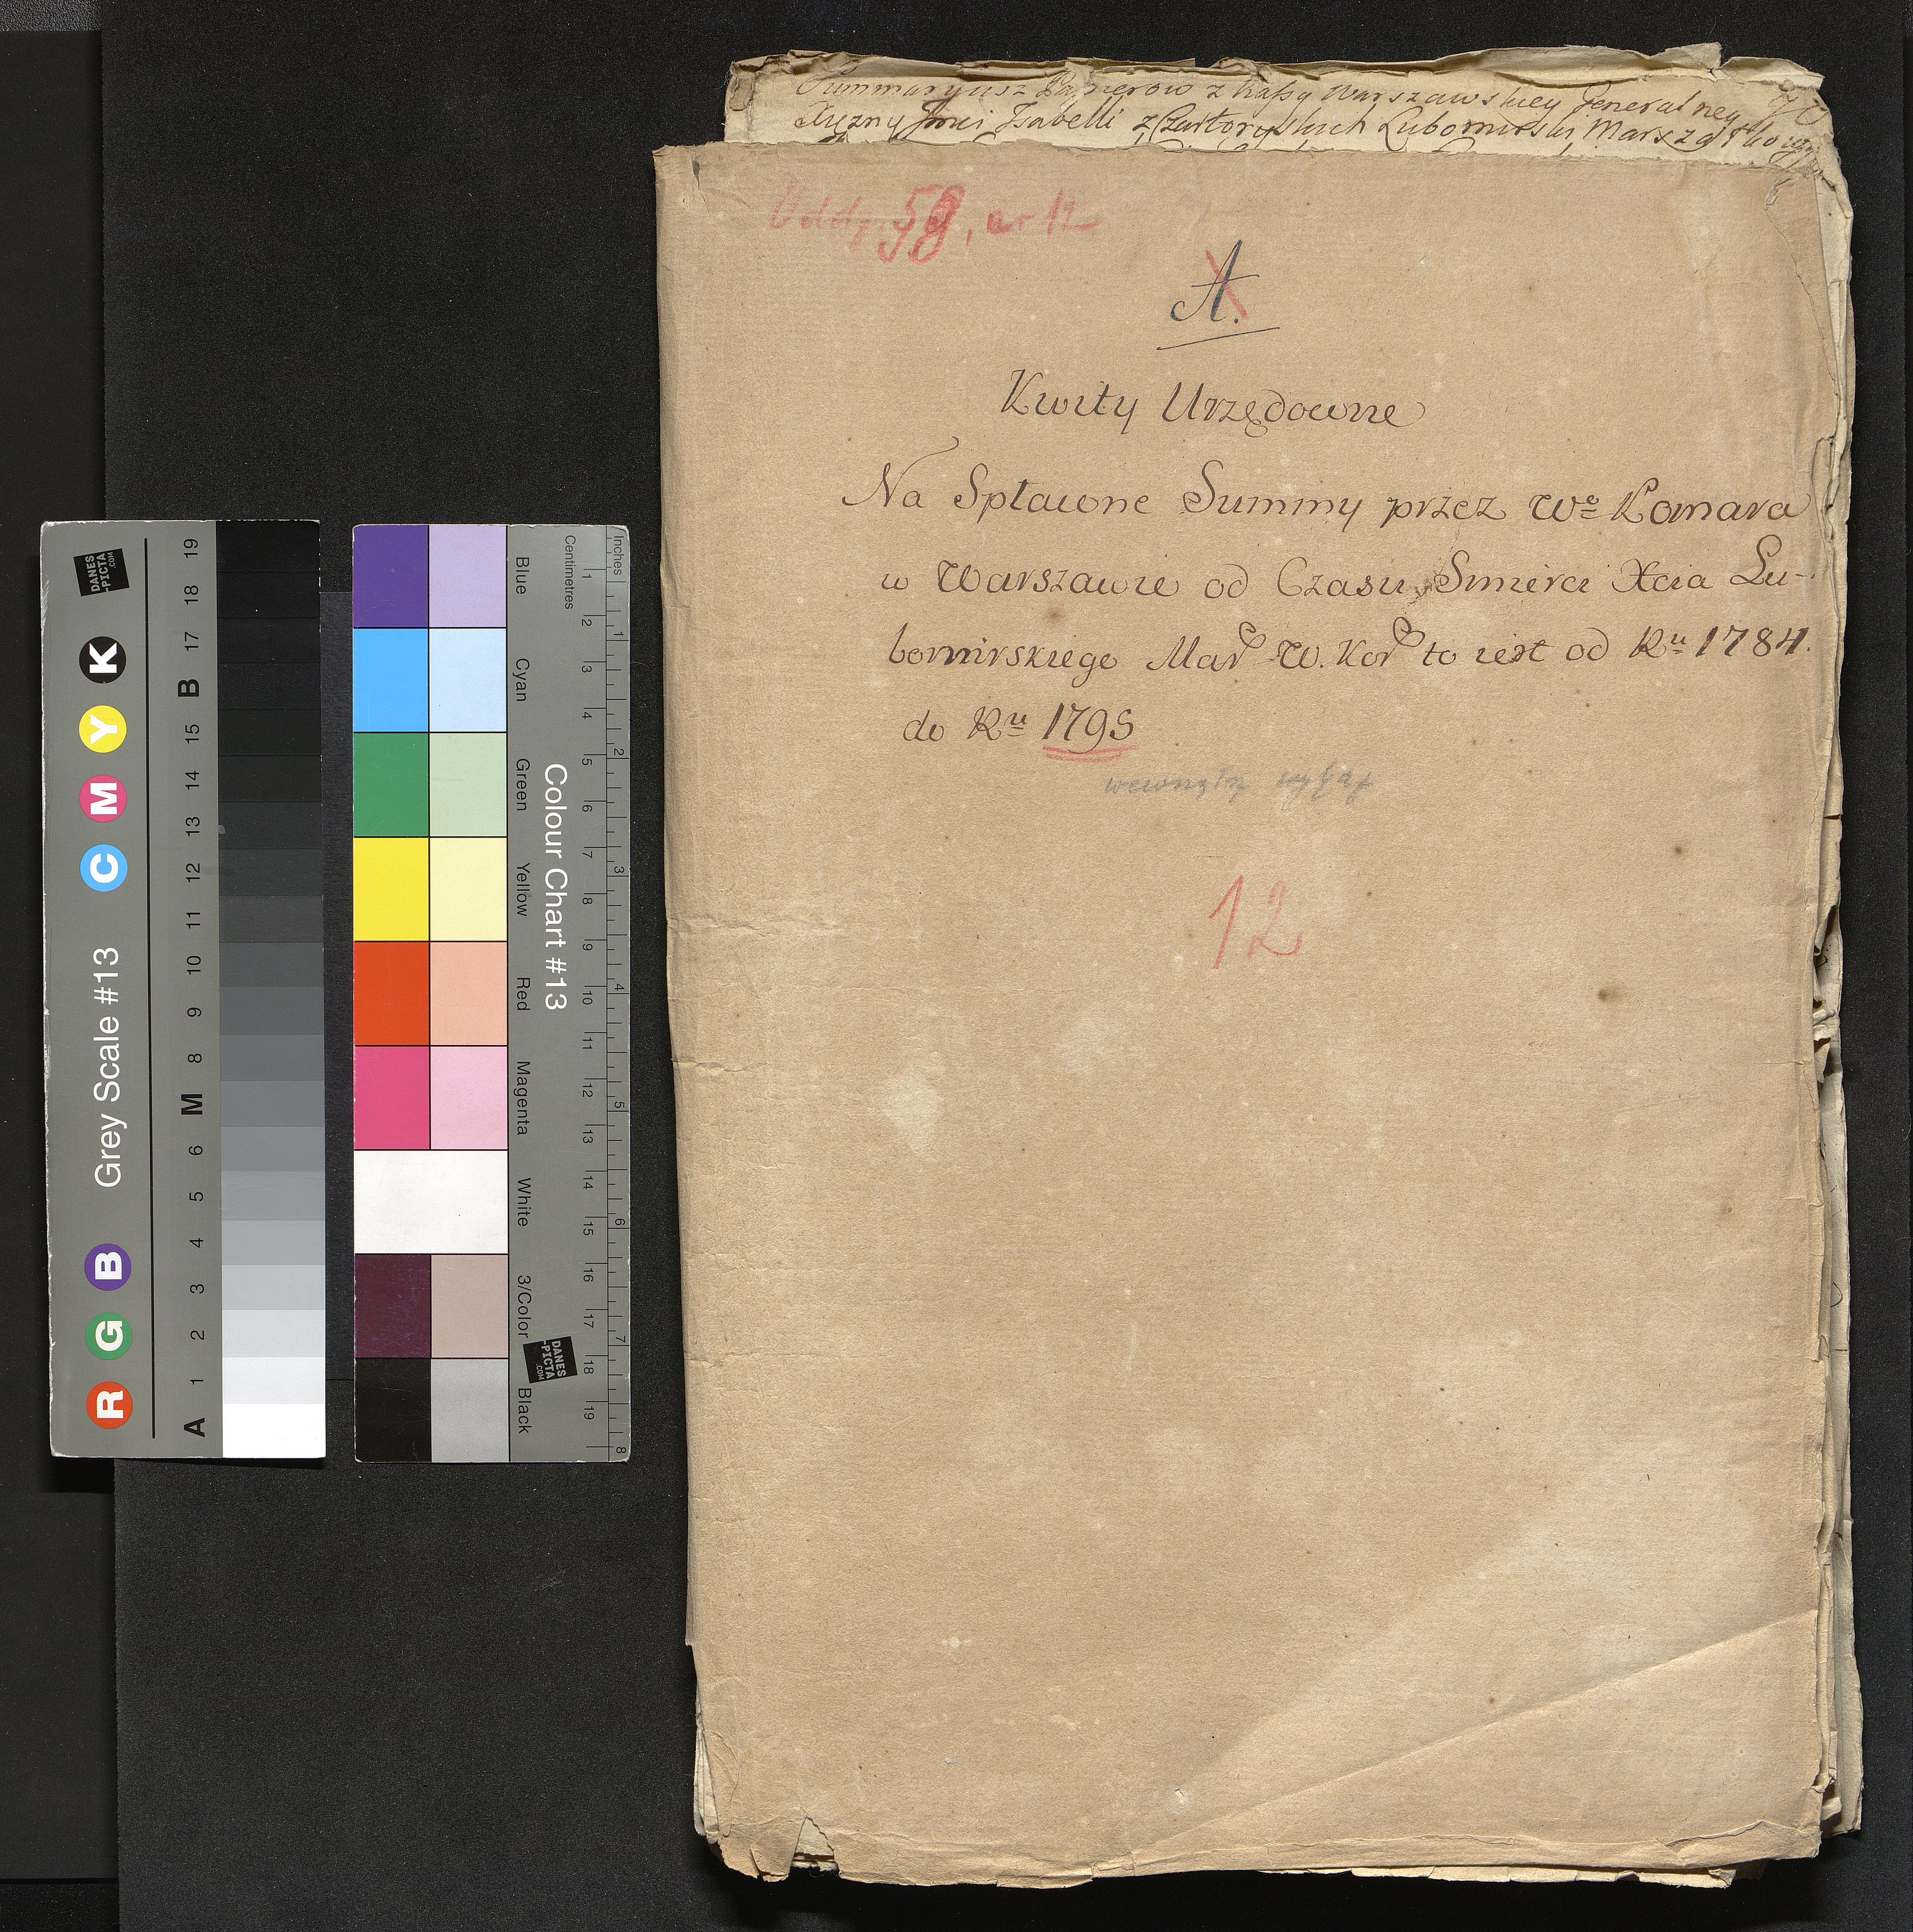 Summaryusz Papierow z Kassy Warszawskiey Jeneralney
Xiężny Jmci Isabelli z Czartoryskich Lubomirski Marszałkowy
Oddz. 58, nr 12
A.
Kwity Urzędowne
Na Spłacone Summy przez Wo Komara
w Warszawie od Czasu Smierci Xcia Lu-
bomirskiego Mar W. Kor to iest od Ru 1784.
do Ru 1795
wewnątrz
12
Grey Scale #13
R G B C M Y K
A 1 2 3 4 5 6 M 8 9 10 11 12 13 14 15 B 17 18 19
DANES
-PICTA
.COM
Colour Chart #13
Blue
Cyan
Green
Yellow
Red
Magenta
White
3/Color
Black
Centimetres
1 2 3 4 5 6 7 8 9 10 11 12 13 14 15 16 17 18 19
Inches
1 2 3 4 5 6 7 8
DANES
-PICTA
.COM